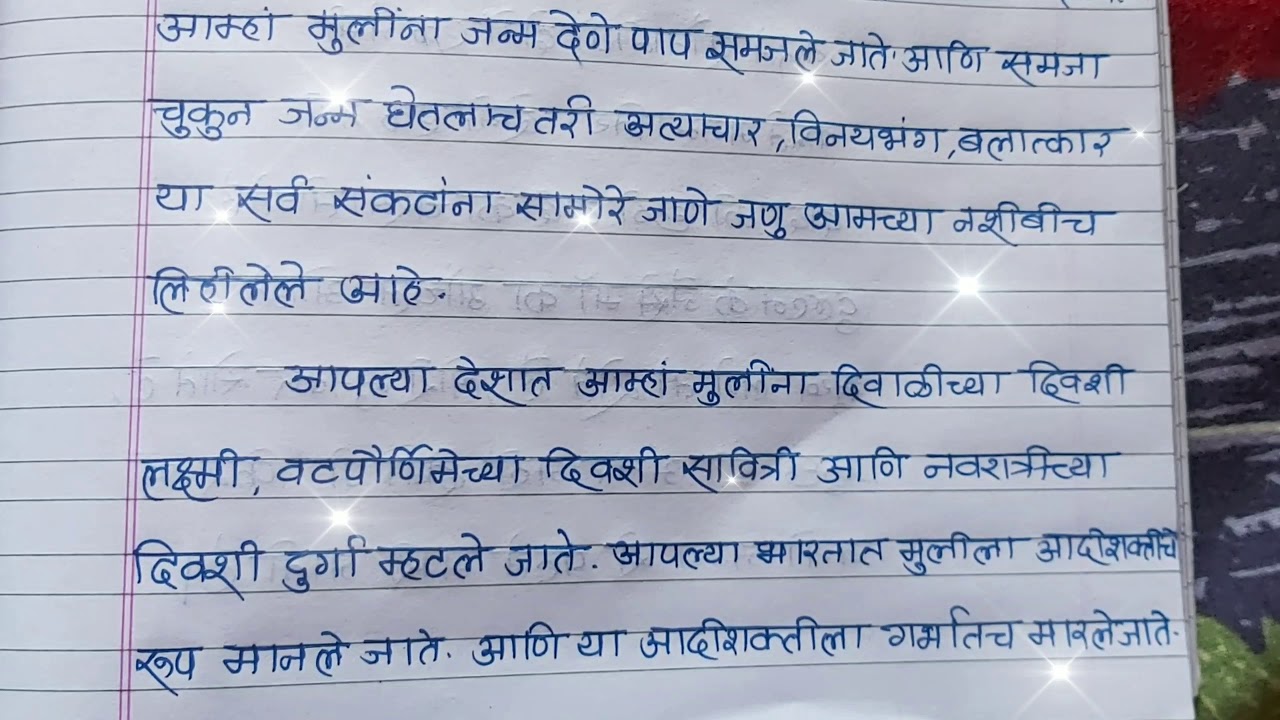 आम्हां मुलींना जन्म देणे पाप समजले जाते. आणि समजा
चुकुन जन्म घेतलाच तरी अत्याचार, विनयभंग, बलात्कार
या सर्व संकटांना सामोरे जाणे जणु आमच्या नशीबीच
लिहीलेले आहे.
आपल्या देशात आम्हां मुलींना दिवाळीच्या दिवशी
लक्ष्मी, वटपौर्णिमेच्या दिवशी सावित्री आणि नवरात्रीच्या
दिवशी दुर्गा म्हटले जाते. आपल्या भारतात मुलीला आदीशक्तीचे
रूप मानले जाते. आणि या आदीशक्तीला गर्भातच मारलेजाते.